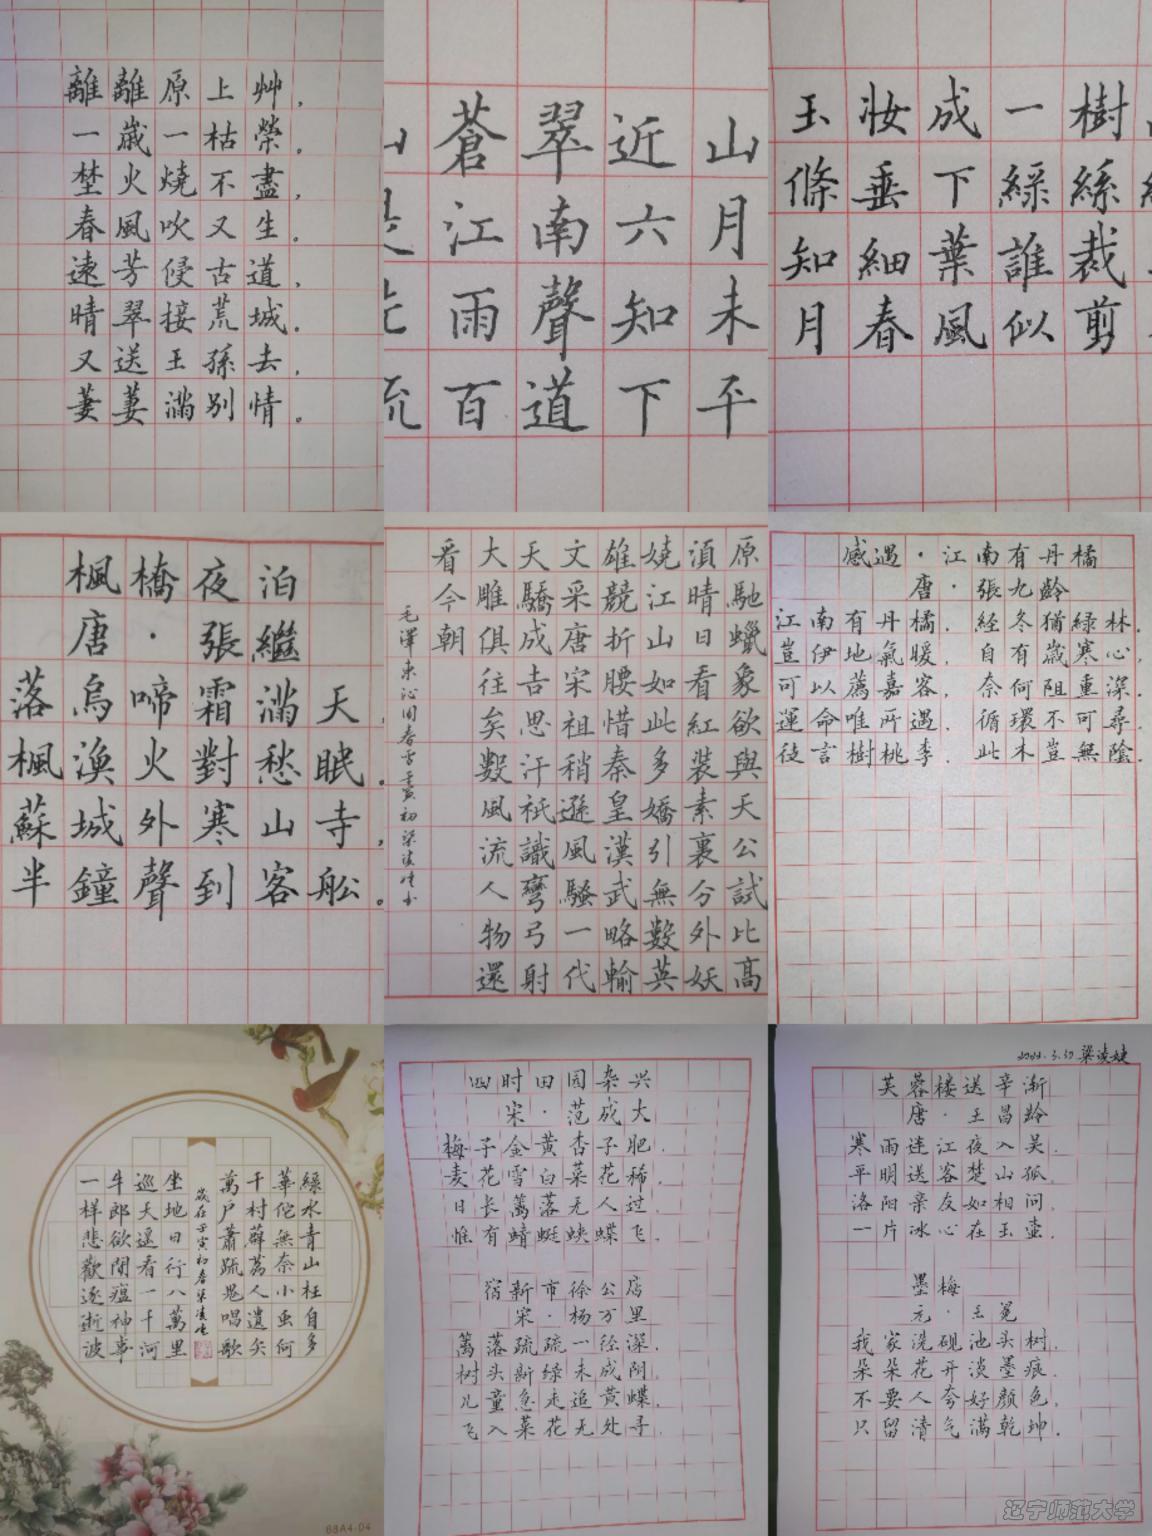 離離原上艸，
一歲一枯榮。
埜火燒不盡，
春風吹又生。
遠芳侵古道，
晴翠接荒城。
又送王孫去，
萋萋滿別情。
蒼翠近山
江南六月
雨聲知未
流百道下平
玉妝成一樹
條垂下綠絲
知細葉誰裁
月春風似剪
楓橋夜泊
唐·張繼
落烏啼霜滿天，
楓漁火對愁眠。
蘇城外寒山寺，
半鐘聲到客舩。
原馳蠟象欲與天公試比高
須晴日看紅裝素裹分外妖
嬈江山如此多嬌引無數英
雄競折腰惜秦皇漢武略輸
文采唐宋祖稍遜風騷一代
天驕成吉思汗衹識彎弓射
大雕俱往矣數風流人物還
看今朝
毛澤東沁園春雪壬寅初梁凌婕書
感遇·江南有丹橘
唐·張九齡
江南有丹橘，經冬猶綠林。
豈伊地氣暖，自有歲寒心。
可以薦嘉客，奈何阻重深。
運命唯所遇，循環不可尋。
徒言樹桃李，此木豈無陰。
綠水青山枉自多
華佗無奈小虫何
千村薜荔人遺矢
萬户蕭疏鬼唱歌
歲在壬寅初春梁凌婕
坐地日行八萬里
巡天遥看一千河
牛郎欲問瘟神事
一樣悲歡逐逝波
68A4-04
四时田园杂兴
宋·范成大
梅子金黄杏子肥，
麦花雪白菜花稀。
日长篱落无人过，
惟有蜻蜓蛱蝶飞。
宿新市徐公店
宋·杨万里
篱落疏疏一径深，
树头新绿未成阴。
儿童急走追黄蝶，
飞入菜花无处寻。
2022.3.30 梁凌婕
芙蓉楼送辛渐
唐·王昌龄
寒雨连江夜入吴，
平明送客楚山孤。
洛阳亲友如相问，
一片冰心在玉壶。
墨梅
元·王冕
我家洗砚池头树，
朵朵花开淡墨痕。
不要人夸好颜色，
只留清气满乾坤。
辽宁师范大学